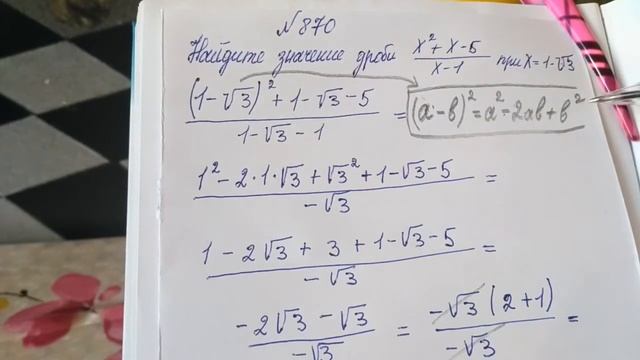 №870
Найдите значение дроби (x²+x-5)/(x-1) при x=1-√3
((1-√3)²+1-√3-5)/(1-√3-1) = (a-b)²=a²-2ab+b²
(1²-2·1·√3+√3²+1-√3-5)/(-√3) =
(1-2√3+3+1-√3-5)/(-√3) =
(-2√3-√3)/(-√3) = (-√3(2+1))/(-√3) =